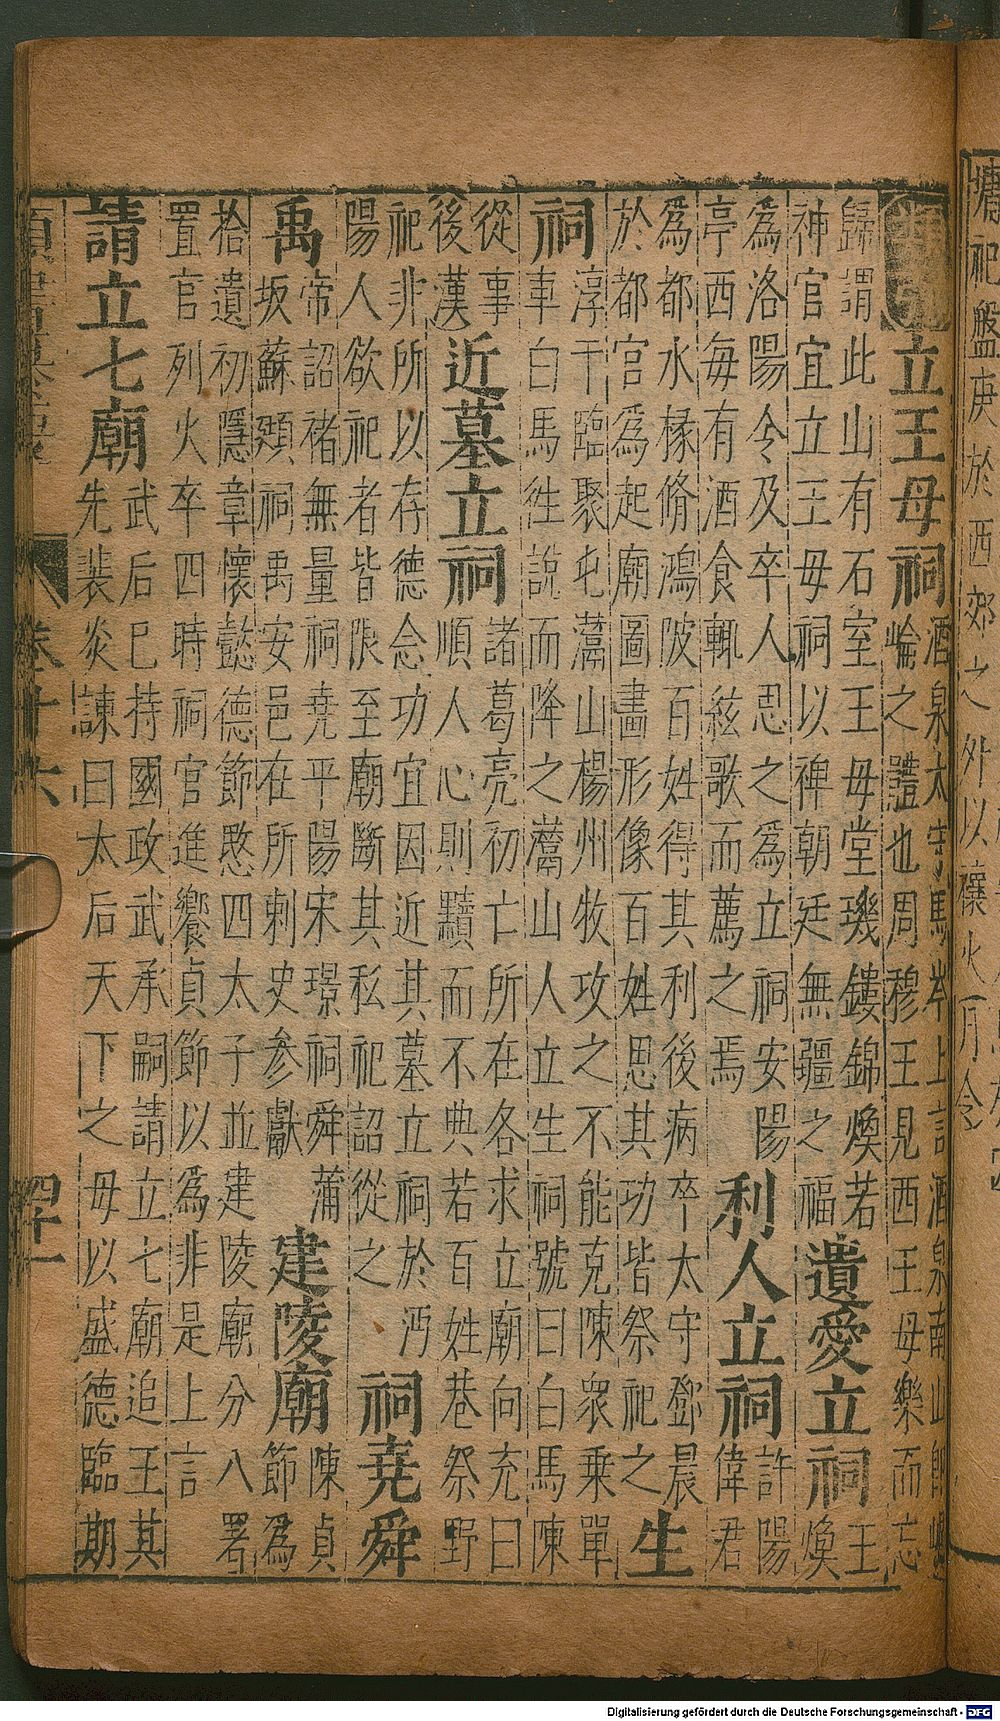 立王母祠酒泉太守馬岌上言酒泉南山即崐
崘之體也周穆王見西王母樂而忘
歸謂此山有石室王母堂璣鏤錦煥若
神宮宜立王母祠以禆朝廷無疆之福
遺愛立祠王煥
爲洛陽令及卒人思之爲立祠安陽
亭西每有酒食輒絃歌而薦之焉
利人立祠許陽偉君
爲都水掾脩鴻陂百姓得其利後病卒太守鄧晨
於都官爲起廟圖畫形像百姓思其功皆祭祀之
生祠
淳于臨聚屯灊山楊州牧攻之不能克陳衆乗單
車白馬徃說而降之灊山人立生祠號曰白馬陳
從事
後漢
近墓立祠諸葛亮初亡所在各求立廟向充曰
順人心則黷而不典若百姓巷祭野
祀非所以存德念功宜因近其墓立祠於沔
陽人欲祀者皆限至廟斷其私祀詔從之
祠堯舜禹
帝詔禇無量祠堯平陽宋璟祠舜蒲
坂蘇頲祠禹安邑在所刺史參獻
建陵廟陳貞節爲
拾遺初隱章懷懿德節愍四太子並建陵廟分八署
置官列火卒四時祠官進饗貞節以爲非是上言
請立七廟武后巳持國政武承嗣請立七廟追王其
先裴炎諫曰太后天下之毋以盛德臨期
卷十六
四十一
祀盤庚於西郊之外以禳火月令